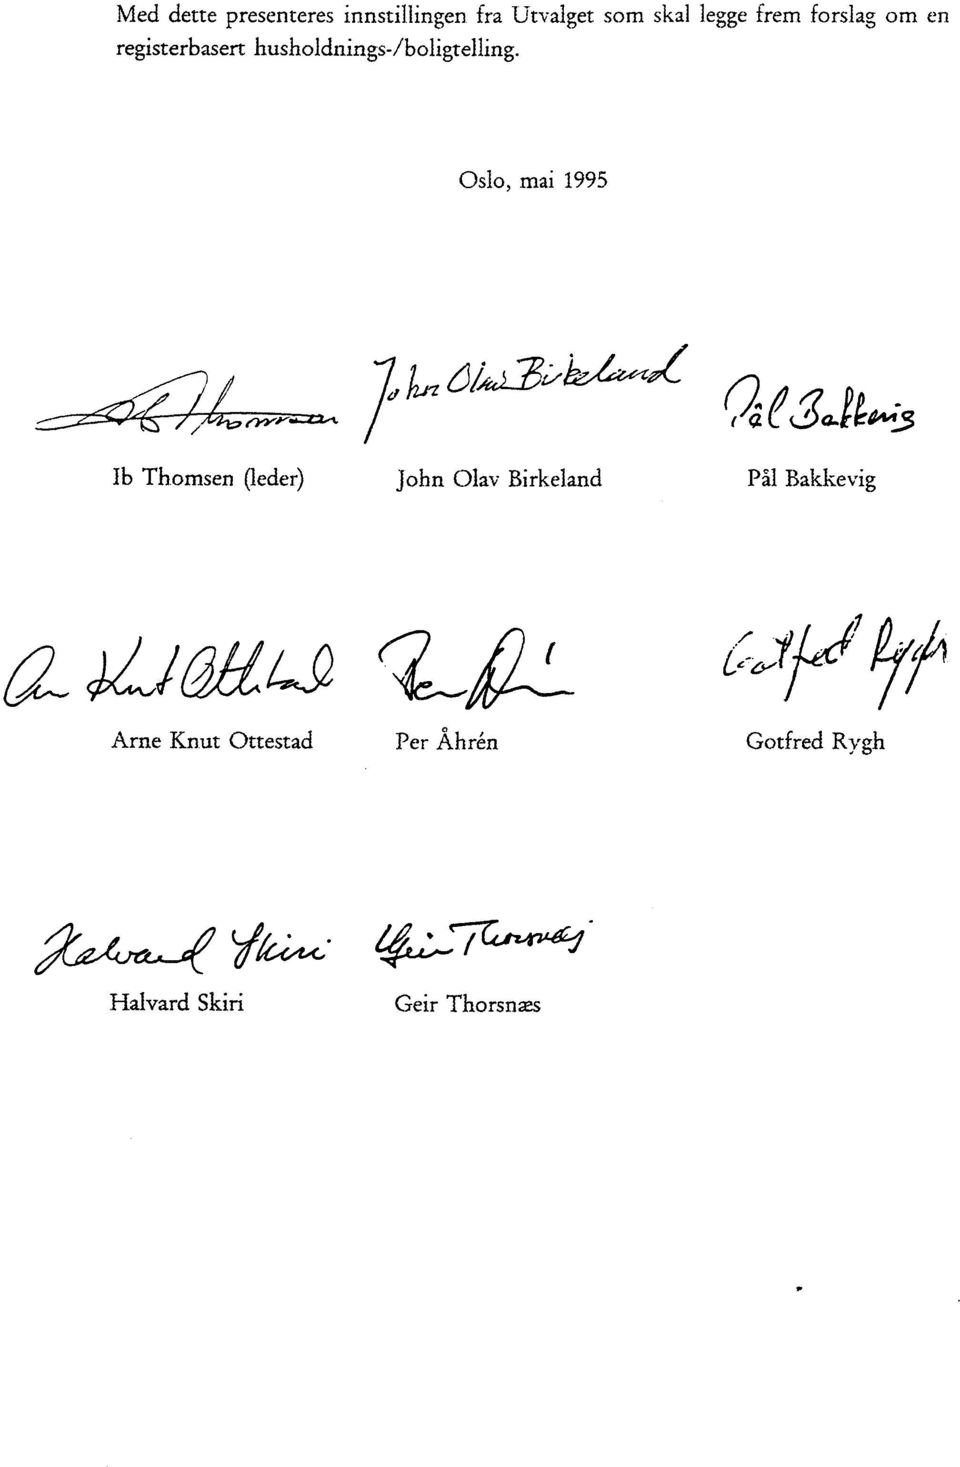 Med dette presenteres innstillingen fra Utvalget som skal legge frem forslag om en
registerbasert husholdnings-/boligtelling.
Oslo, mai 1995
Ib Thomsen John Olav Birkeland Pål Bakkevig
Ib Thomsen (leder) John Olav Birkeland Pål Bakkevig
Arne Knut Ottestad Per Åhrén Gotfred Rygh
Arne Knut Ottestad Per Åhrén Gotfred Rygh
Halvard Skiri Geir Thorsnæs
Halvard Skiri Geir Thorsnæs